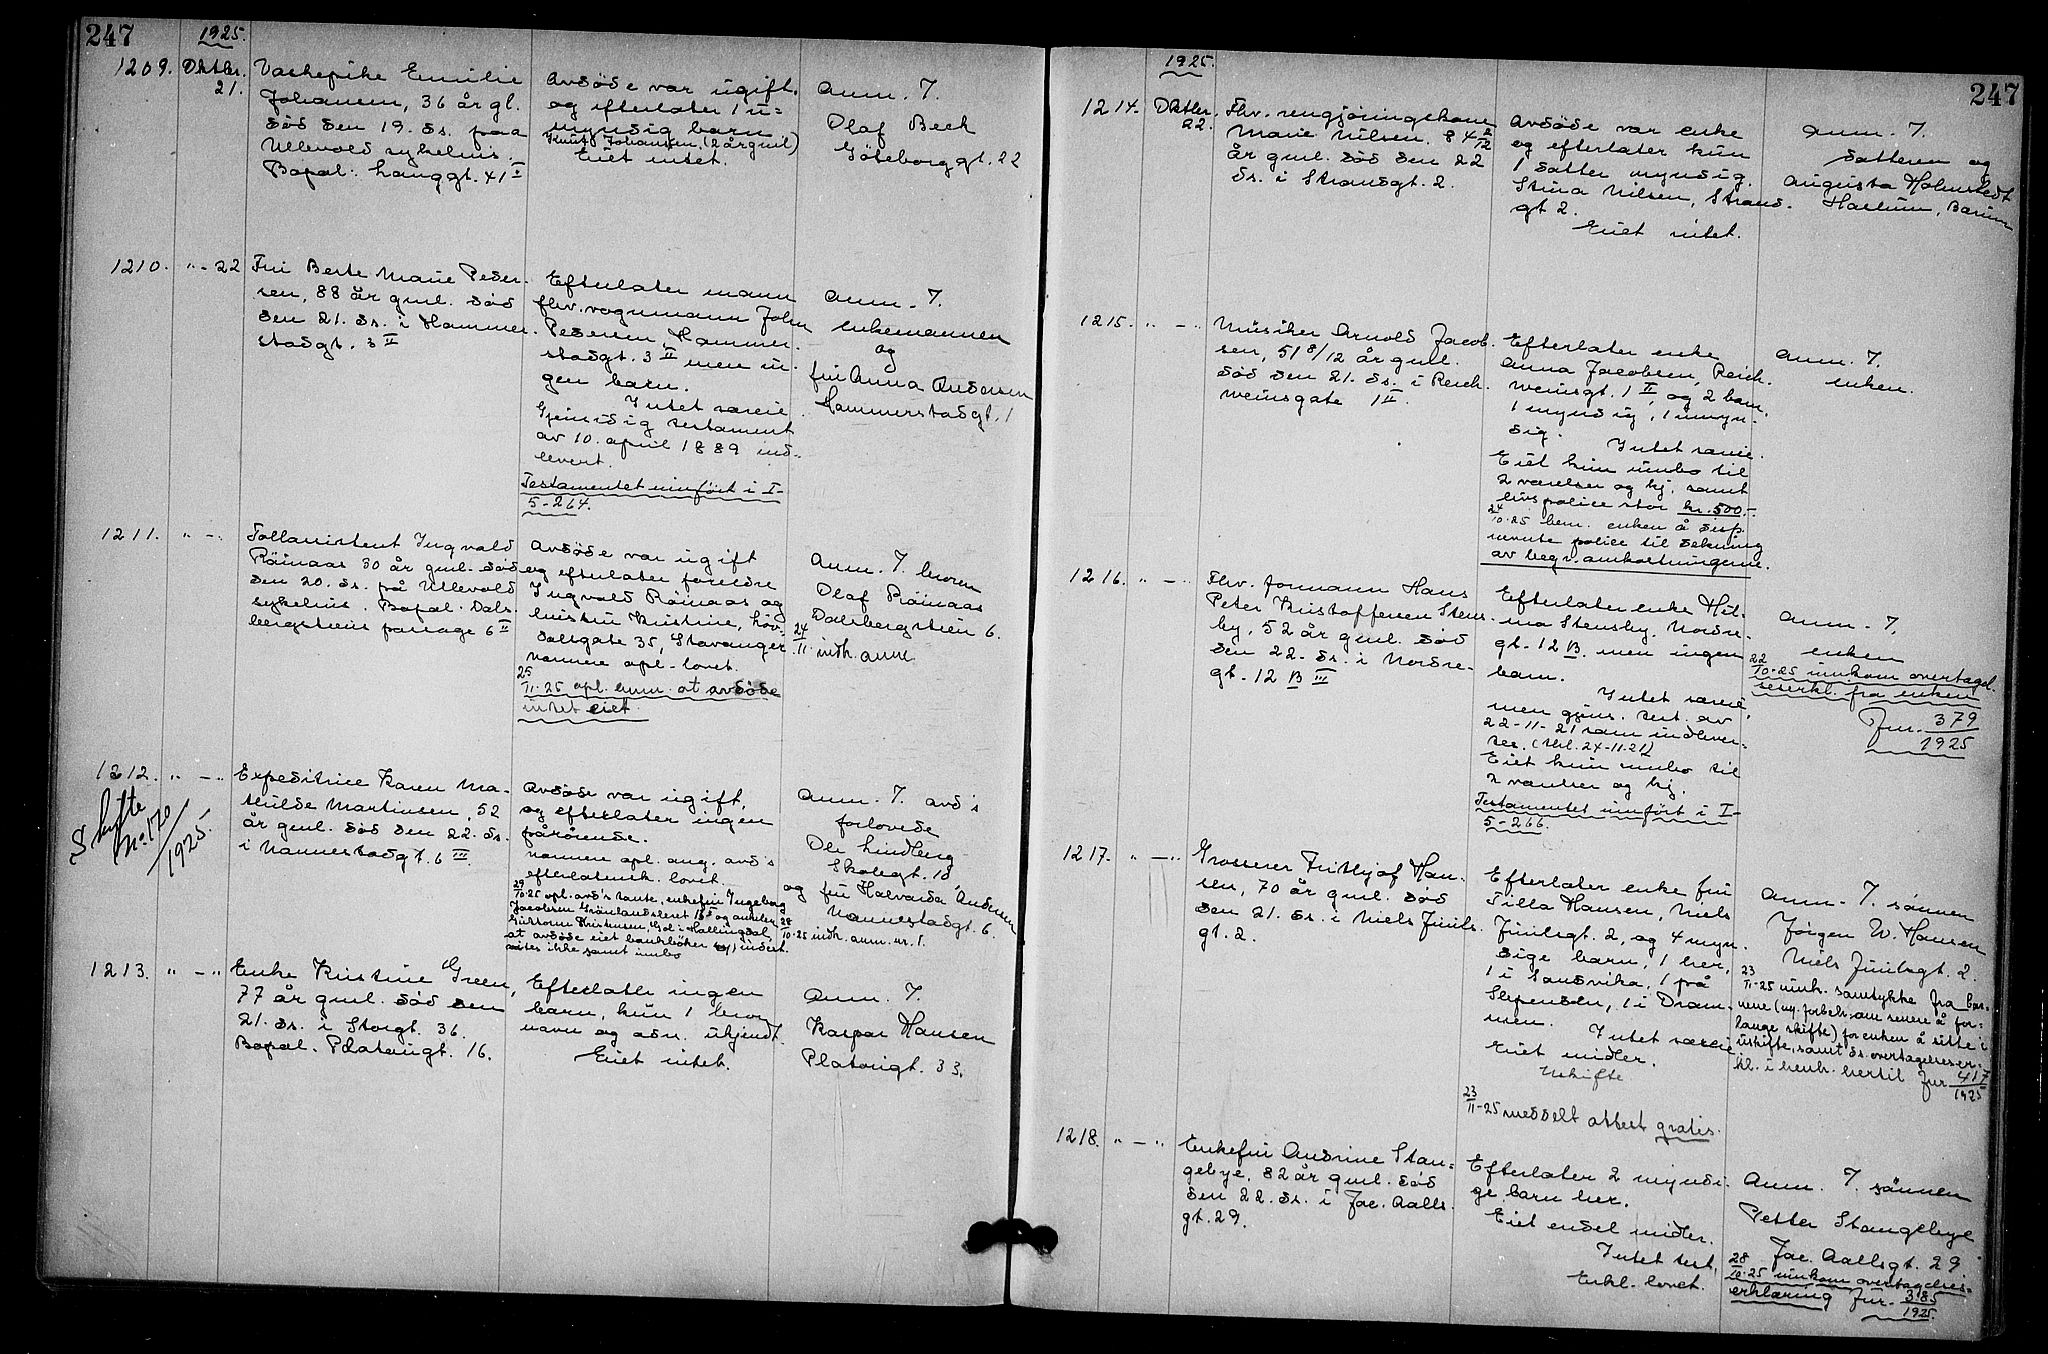 247
1925.
1209. Oktbr. 21.
Vaskepike Emilie
Johansen, 36 år gl.
død den 19. ds. paa
Ullevold sykehus.
Bopæl: Langgt. 41 I
Avdøde var ugift,
og efterlater 1 u=
myndig barn
Knut Johansen, (2 år gml)
Eiet intet.
Anm. 7.
Olaf Beck
Göteborggt. 22
1210. " - 22
Fru Berte Marie Peder-
sen, 88 år gml. død
den 21. ds. i Hammer-
stadgt. 3 II
Efterlater mann
fhv. vognmann John
Pedersen, Hammer-
stadgt. 3 II men in-
gen barn.
Intet særeie.
Gjensidig testament
av 10. april 1889 ind-
levert.
Testamentet innført i I-
5-264.
Anm. 7.
enkemannen
og
fru Anna Andersen
Hammerstadgt. 1
1211. " - "
Tollassistent Ingvald
Röinaas 30 år gml. død
den 20. ds. på Ullevold
sykehus. Bopæl. Dals-
bergstiens passage 6 II
Avdøde var ugift
og efterlater foreldre
Ingvald Röinaas og
hustru Kristine,
35, Stavanger
nærmere opl. lovet.
25/11-25 opl. anm. at avdøde
intet eiet.
Anm. 7. broren
Olaf Röinaas
Dalsbergstien 6.
24/11. indk. anm.
1212. " - "
Skifte
No. 170/1925.
Expeditrice Karen Ma-
thilde Martinsen, 52
år gml. død den 22. ds.
i Nannestadgt. 6 III.
Avdøde var ugift,
og efterlater ingen
pårørende.
Nærmere opl. ang. avd's
efterlatensk. lovet.
29/10-25 opl. avd's tante, enkefru Ingeborg
Jacobsen Grönlandsleret 18 og
Kristensen, Gol i Hallingdal,
at avdøde eiet bankbøker
vites ikke samt innbo
Anm. 7. avd's
forlovede
Ole Lindberg
Skolegt. 10,
og fru Halvarda Andersen
Nannestadgt. 6.
28/10-25 indk. anm. nr. 1.
1213. " - "
Enke Kristine Green,
77 år gml. død den
21. ds. i Storgt. 36.
Bopæl. Platougt. 16.
Efterlater ingen
barn, kun 1 bror
navn og adr. ukjendt.
Eiet intet.
Anm. 7.
Kaspar Hansen
Platougt. 33.
1925.
247
1214. Oktbr. 22.
Fhv. rengjøringskone
Marie Nilsen, 84 8/12
år gml. død den 22
ds. i Strandgt. 2.
Avdøde var enke
og efterlater kun
1 datter myndig.
Stina Nilsen, Strand-
gt 2.
Eiet intet.
Anm. 7.
datteren og
Augusta Holmstedt
Haslum, Bærum
1215. " - "
Musiker Arnold Jacob-
sen, 51 8/12 år gml.
død den 21. ds. i Reich-
weinsgate 1 II.
Efterlater enke
Anna Jacobsen, Reich-
weinsgt. 1 II og 2 barn,
1 myndig, 1 umyn-
dig.
Intet særeie.
Eiet kun innbo til
2 værelser og kj. samt
livspolice stor kr. 500.-
24/10-25 bem. enken å disp.
nevnte police til dekning
av begr. omkostningerne.
Anm. 7.
enken.
1216. " - "
Fhv. formann Hans
Peter Kristoffersen Stens-
by, 52 år gml. død
den 22. ds. i Nordre-
gt. 12 B III
Efterlater enke Hil-
ma Stensby, Nordre-
gt. 12 B. men ingen
barn.
Intet særeie,
men gjens. test. av
22-11-21 som indlever-
tes. (24-11-21)
Eiet kun innbo til
2 værelser og kj.
Testamentet innført i I-
5-266.
Anm. 7.
enken
22/10-25 innkom overtagel-
seserkl. fra enken
Jnr. 379/1925
1217. " - "
Grosserer Frithjof Han-
sen, 70 år gml. død
den 21. ds. i Niels Juuls-
gt. 2.
Efterlater enke fru
Tilla Hansen, Niels
Juulsgt. 2, og 4 myn-
dige barn, 1 her,
1 i Sandvika, 1 på
Slependen, 1 i Dram-
men.
Intet særeie
Eiet midler.
Uskifte
23/11-25 meddelt attest gratis.
Anm. 7. sønnen
Jørgen W. Hansen
Niels Juulsgt. 2.
23/11-25 innk. samtykke fra bar-
nene (m. forbeh. om senere å for-
lange skifte) for enken å sitte i
uskifte, samt ds. overtagelseser-
kl. i henh. hertil Jnr 417/1925
1218. " - "
Enkefru Andrine Stan-
gebye, 82 år gml. død
den 22. ds. i Jac. Aalls-
gt. 29.
Efterlater 2 myndi-
ge barn her.
Eiet endel midler.
Intet test.
Erkl. lovet.
Anm. 7. sønnen
Petter Stangebye
Jac. Aallsgt. 29.
28/10-25 innkom overtagelses-
erklæring Jnr. 385/1925.